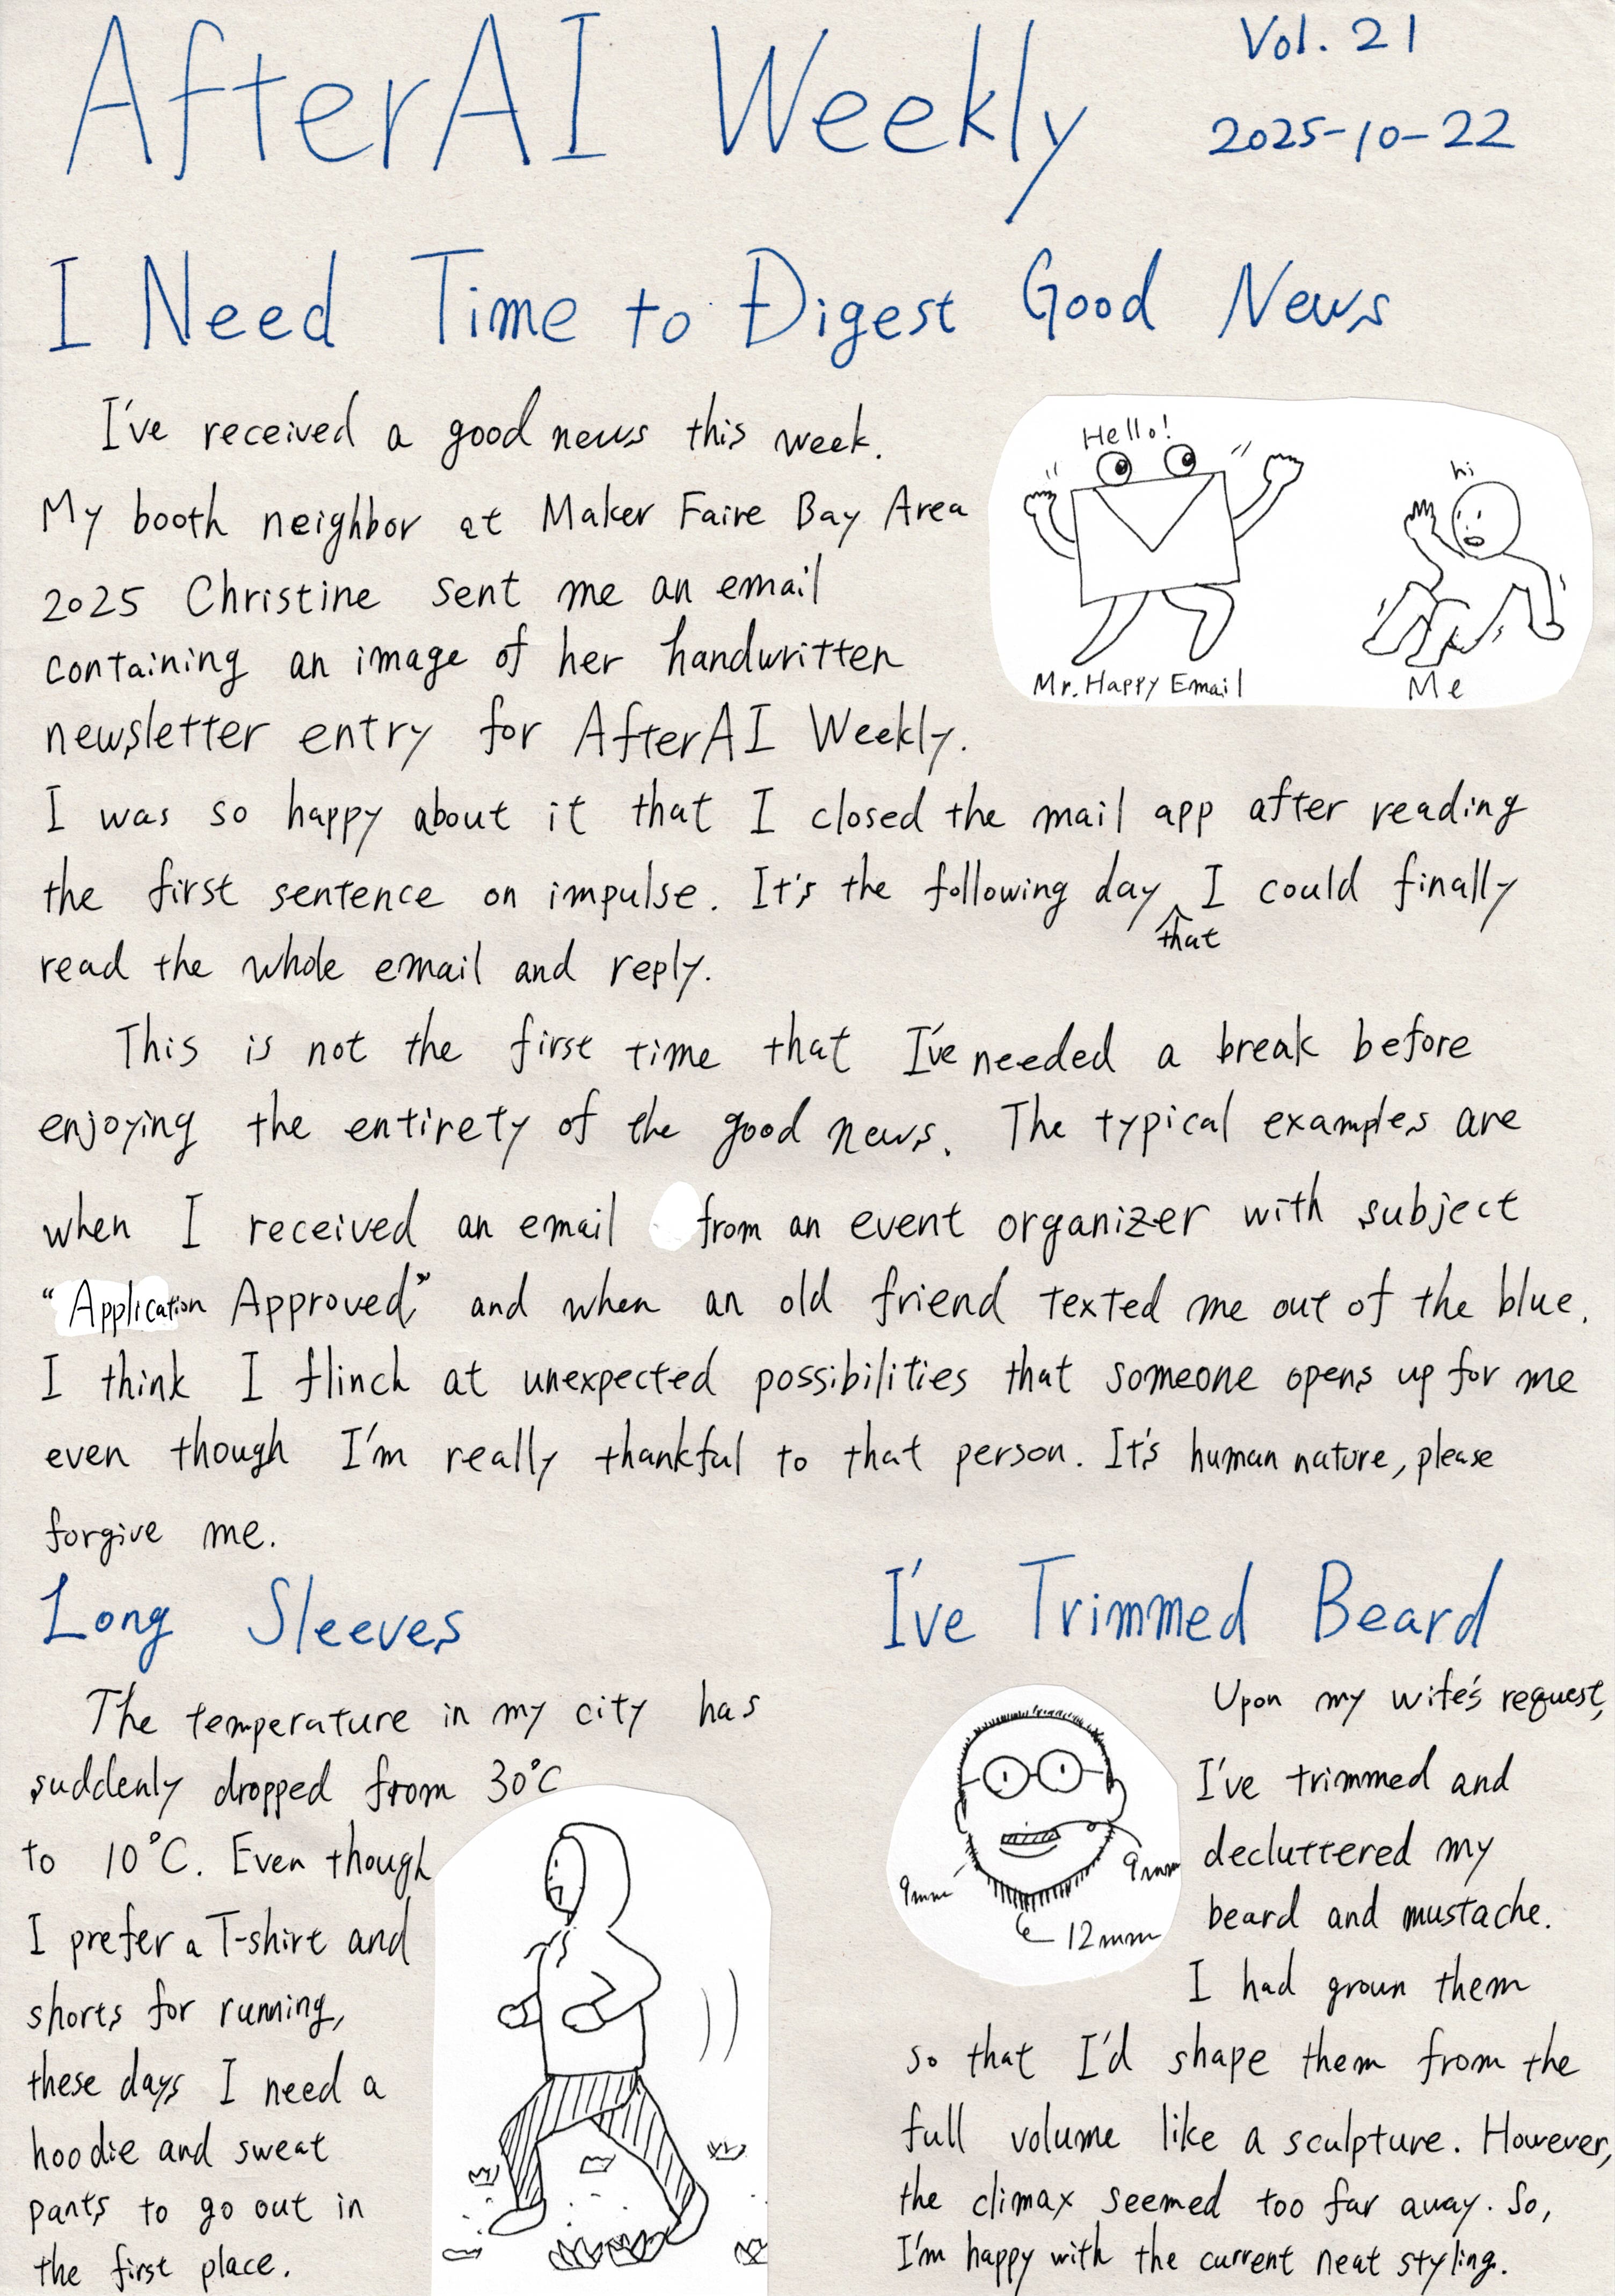 AfterAI Weekly
Vol. 21
2025-10-22
I Need Time to Digest Good News
I've received a good news this week.
My booth neighbor at Maker Faire Bay Area
2025 Christine sent me an email
containing an image of her handwritten
newsletter entry for AfterAI Weekly.
Hello!
hi
Mr. Happy Email
Me
I was so happy about it that I closed the mail app after reading
the first sentence on impulse. It's the following day that I could finally
read the whole email and reply.
This is not the first time that I've needed a break before
enjoying the entirety of the good news. The typical examples are
when I received an email from an event organizer with subject
"Application Approved," and when an old friend texted me out of the blue.
I think I flinch at unexpected possibilities that someone opens up for me
even though I'm really thankful to that person. It's human nature, please
forgive me.
Long Sleeves
The temperature in my city has
suddenly dropped from 30°C
to 10°C. Even though
I prefer a T-shirt and
shorts for running,
these days I need a
hoodie and sweat
pants to go out in
the first place.
I've Trimmed Beard
Upon my wife's request,
I've trimmed and
decluttered my
beard and mustache.
I had grown them
so that I'd shape them from the
full volume like a sculpture. However,
the climax seemed too far away. So,
I'm happy with the current neat styling.
9mm
9mm
12mm